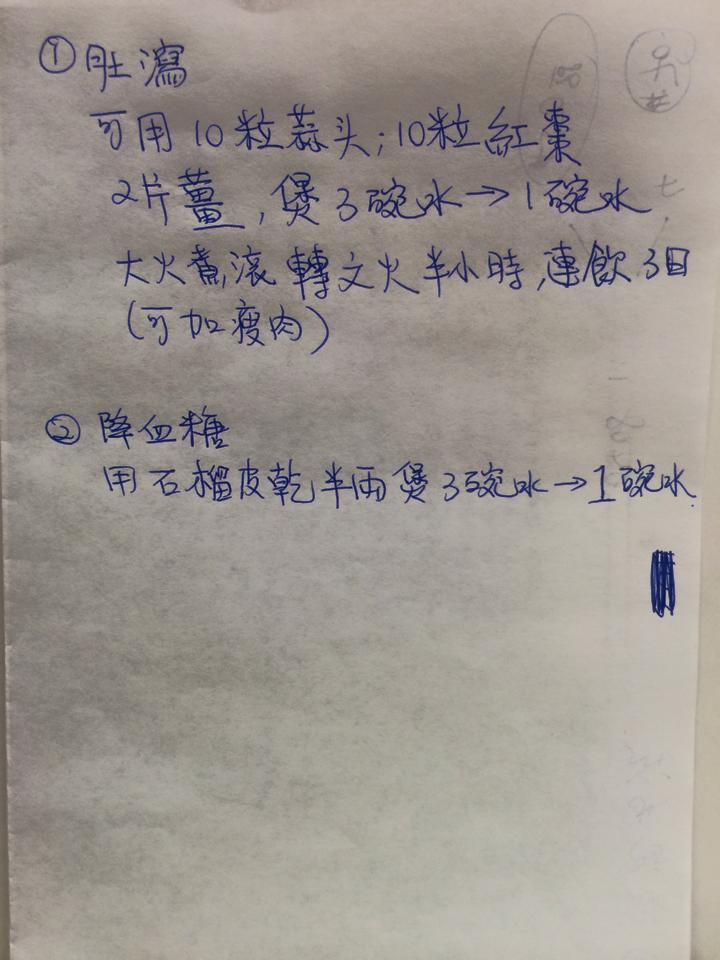 ① 肚瀉
可用10粒蒜头;10粒紅棗
2片薑,煲3碗水→1碗水
大火煮滚轉文火半小時,連飲3日
(可加瘦肉)
② 降血糖
用石榴皮乾半両煲3碗水→1碗水